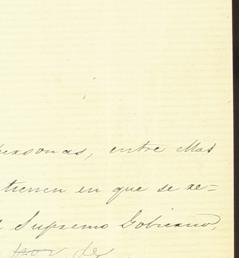 personas, entre ellas
tienen en que se re=
Supremo Gobierno,
por de